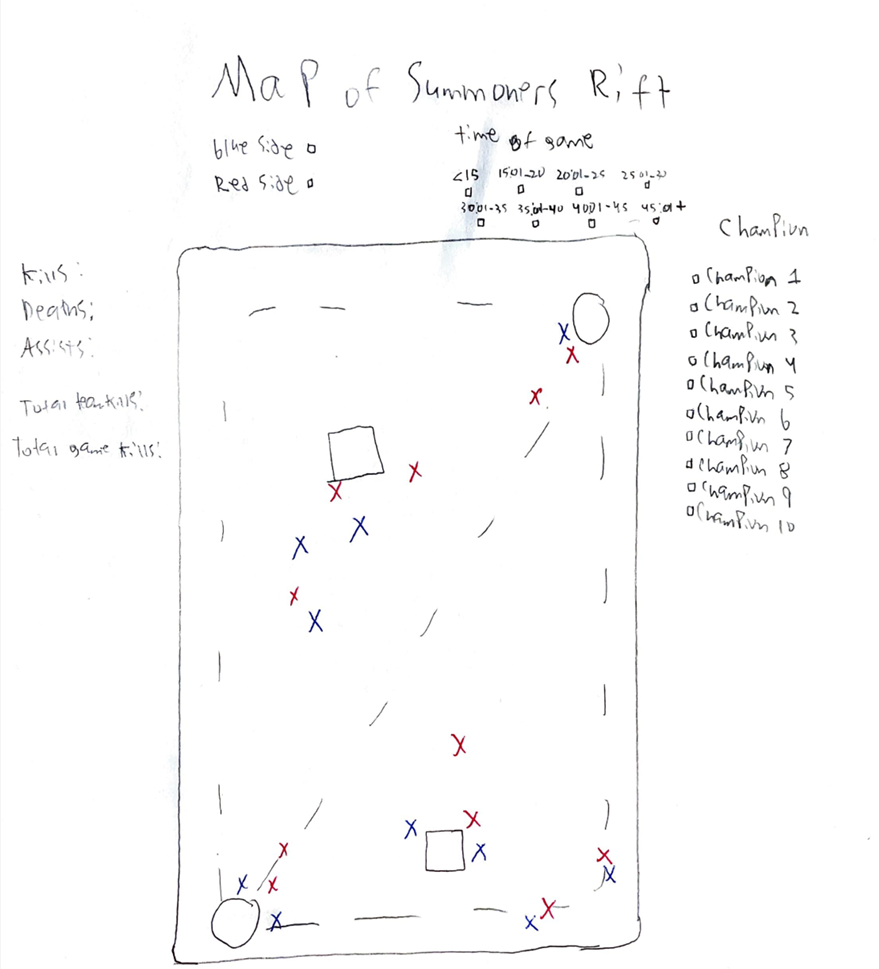 Map of Summoners Rift
blue side
Red side
time of game
<15 15:01-20 20:01-25 25:01-30
30:01-35 35:01-40 40:01-45 45:01+
Champion
Kills:
Deaths:
Assists:
Total team kills:
Total game kills:
Champion 1
Champion 2
Champion 3
Champion 4
Champion 5
Champion 6
Champion 7
Champion 8
Champion 9
Champion 10